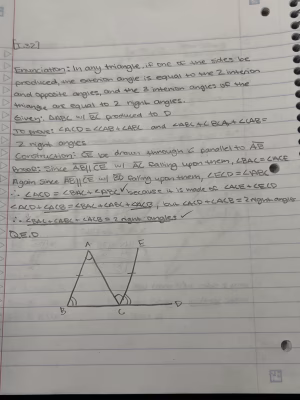 [I.32]
Enunciation: In any triangle, if one of the sides be
produced, the exterior angle is equal to the 2 interior
and opposite angles, and the 3 interior angles of the
triangle are equal to 2 right angles.
Given: △ABC w/ BC produced to D
To prove: ∠ACD = ∠CAB + ∠ABC and ∠ABC + ∠BCA + ∠CAB =
2 right angles
Construction: CE be drawn through C parallel to AB
Proof: Since AB || CE w/ AC falling upon them, ∠BAC = ∠ACE
Again since AB || CE w/ BD falling upon them, ∠ECD = ∠ABC
∴ ∠ACD = ∠BAC + ∠ABC because it is made of ∠ACE + ∠ECD
∠ACD + ∠ACB = ∠BAC + ∠ABC + ∠ACB, but ∠ACD + ∠ACB = 2 right angles
∴ ∠BAC + ∠ABC + ∠ACB = 2 right angles ✓
Q.E.D
A
E
B
C
D